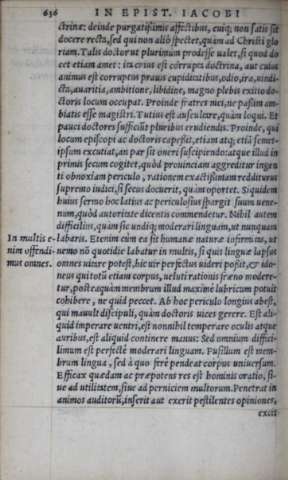 636 IN EPIST. IACOBI
ctrinæ: deinde purgatissimis affectibus, cuiq; non satis sit
docere recta, sed qui non aliò spectet, quàm ad Christi glo
riam. Talis doctor ut plurimùm prodesse ualet, si quod do
cet etiam amet: ita crius est corrupta doctrina, aut cuius
animus est corruptus prauis cupiditatibus, odio, ira, uindi-
cta, auaritia, ambitione, libidine, magno plebis exitio do-
ctoris locum occupat. Proinde fratres mei, ne passim am-
biatis esse magistri. Tutius est auscultare, quàm loqui. Et
pauci doctores sufficiūt pluribus erudiendis. Proinde, qui
locum episcopi ac doctoris capessit, etiam atq; etiā semet-
ipsum excutiat, an par sit oneri suscipiendo: atque illud in
primis secum cogitet, quòd prouinciam aggreditur ingen
ti obnoxiam periculo, rationem exactissimam redditurus
supremo iudici, si secus docuerit, quàm oportet. Siquidem
huius sermo hoc latius ac periculosius spargit suum uene-
num, quòd autoritate dicentis commendetur. Nihil autem
difficilius, quàm sic undiq; moderari linguam, ut nunquam
In multis e- labaris. Etenim cùm ea sit humanæ naturæ infirmitas, ut
nim offendi- nemo nō quotidie labatur in multis, si quis linguæ lapsus
mus omnes. omnes uitare potest, hic uir perfectus uideri possit, & ido-
neus qui totū etiam corpus, ueluti rationis fræno modere-
tur, posteaquàm membrum illud maximè lubricum potuit
cohibere, ne quid peccet. Ab hoc periculo longius abest,
qui mauult discipuli, quàm doctoris uices gerere. Est ali-
quid imperare uentri, est nonnihil temperare oculis atque
auribus, est aliquid continere manus: Sed omnium diffici-
limum est perfectè moderari linguam. Pusillum est mem-
brum lingua, sed à quo ferè pendeat corpus uniuersum.
Efficax quædam ac præpotens res est hominis oratio, si-
ue ad utilitatem, siue ad perniciem multorum. Penetrat in
animos auditorū, inserit aut exerit pestilentes opiniones,
exci